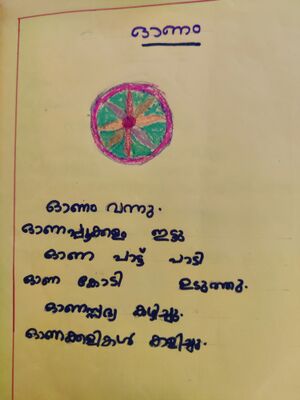 ഓണം
ഓണം വന്നു.
ഓണപ്പൂക്കളം ഇട്ടു
ഓണ പാട്ട് പാടി
ഓണ കോടി ഉടുത്തു.
ഓണസ്സദ്യ കഴിച്ചു.
ഓണക്കളികൾ കളിച്ചു.